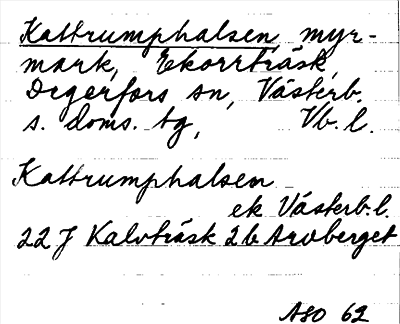 Kattrumphalsen, myr-
mark, Ekorrträsk,
Degerfors sn, Västerb.
s. doms. tg, Vb. l.
Kattrumphalsen
ek Västerb. l.
22 J Kalvträsk 2b Arvberget
ASO 62